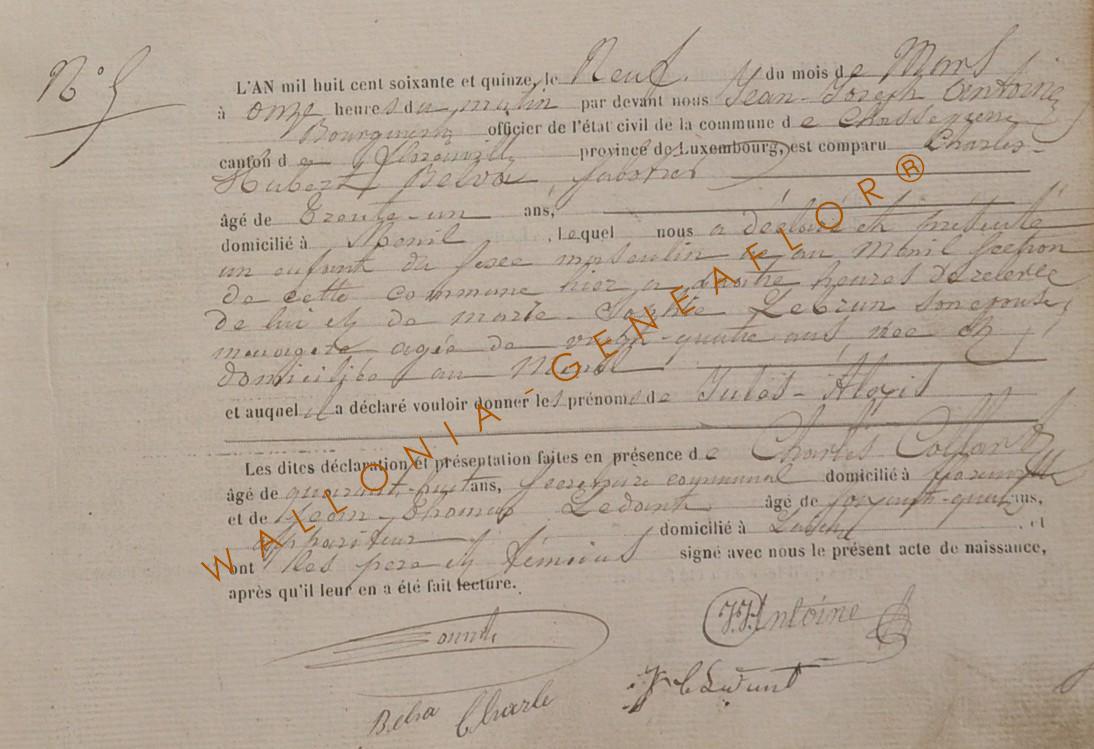 N° 5
L'AN mil huit cent soixante et quinze, le Neuf du mois de Mars
à onze heures du matin par devant nous Jean-Joseph Antoine
Bourgmestre officier de l'état civil de la commune de Chassepierre
canton de Florenville province de Luxembourg, est comparu Charles-
Hubert Belva
âgé de Trente-un ans,
domicilié à Menil, lequel nous a déclaré et présenté
un enfant du sexe masculin né au Ménil section
de cette commune hier à heures de relevée
de lui et de marie-Sophie Lebrun son épouse,
ménagère agée de vingt-quatre ans née et
domiciliée au Menil
et auquel il a déclaré vouloir donner les prénoms de Jules-Aloÿs
Les dites déclaration et présentation faites en présence de Charles Collard
âgé de quarante-huit ans, secrétaire communal domicilié à Florenville
et de Jean-Thomas Ledant âgé de ans,
appariteur domicilié à Laiche et
ont les père et témoins signé avec nous le présent acte de naissance,
après qu'il leur en a été fait lecture.
J.J. Antoine
Belva Charle
WALLONIA-GENEAFLOR®